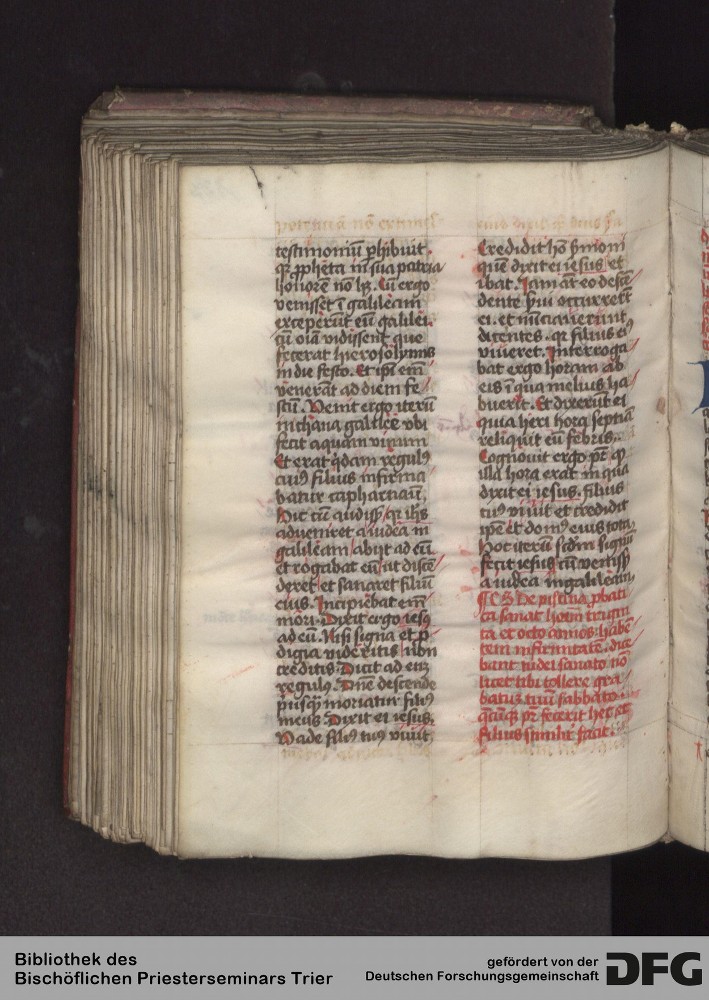 testimoniū ꝑhibuit.
qꝛ ꝓpheta in sua patria
honorē nō hꝫ. Cū ergo
venisset ī galileam
exceperūt eū galilei.
cū oīa vidissent que
fecerat hierosolymis
in die festo. Et ipī em̄
venerāt ad diem fe
stū. Venit ergo iterū
in chana galilee vbi
fecit aquam vinum
Et erat qdam regulꝰ
cuiꝰ filius infirma
batur capharnaū.
Hic cū audissꝫ qꝛ ihs
adveniret a iudea in
galileam abijt ad eū.
et rogabat eū ut discē
deret et sanaret filiū
eius. Incipiebat em̄
mori. Dixit ergo iesꝰ
ad eū. Nisi signa et ꝓ
digia videritis nō
creditis. Dicit ad eū
regulꝰ. Dn̄e descende
priusꝗ moriatur filiꝰ
meus. Dixit ei iesus.
Vade filiꝰ tuꝰ viuit.
Credidit hō s̄moni
quē dixit ei iesus et
ibat. Iam āt eo descē
dente s̄ui occurrerūt
ei. et nūciauerunt
dicentes. qꝛ filius eiꝰ
viueret. Interroga
bat ergo horam ab
eis ī qua melius ha
buerit. Et dixerūt ei
quia heri hora septīa
reliquit eū febris.
Cognouit ergo pr̄ qꝛ
illa hora erat in qua
dixit ei iesus. filius
tuꝰ viuit et credidit
ipē et domꝰ eius tota.
Hoc iterū scd̄m signū
fecit iesus cū venissꝫ
a iudea in galileam.
De piscina ꝓbati
ca sanat hoīem trigin
ta et octo annos habē
tem infirmitatē. dice
bant iudei sanato nō
licet tibi tollere gra
batū tuū sabbato.
qcūqꝫ pr̄ fecerit hec et
filius similr̄ facit.
Bibliothek des
Bischöflichen Priesterseminars Trier
gefördert von der
Deutschen Forschungsgemeinschaft
DFG